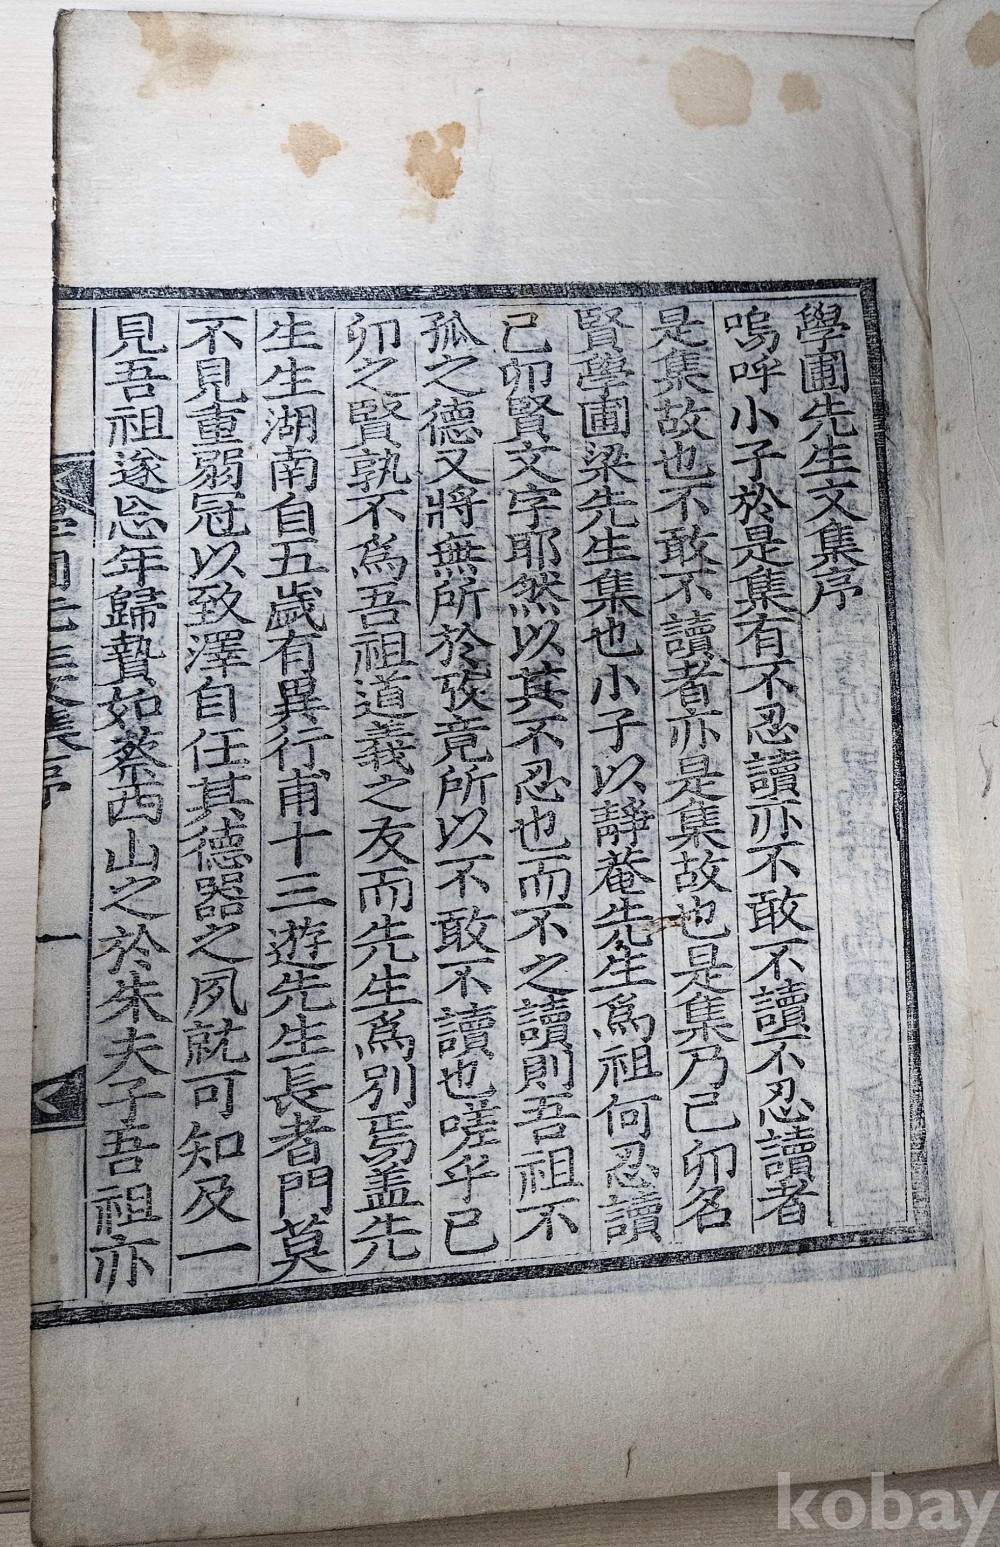 學圃先生文集序
嗚呼小子於是集有不忍讀亦不敢不讀不忍讀者
是集故也不敢不讀者亦是集故也是集乃己卯名
賢學圃梁先生集也小子以靜菴先生爲祖何忍讀
己卯賢文字耶然以其不忍也而不之讀則吾祖不
孤之德又將無所於攷竟所以不敢不讀也嗟乎己
卯之賢孰不爲吾祖道義之友而先生爲別焉盖先
生生湖南自五歲有異行甫十三遊先生長者門莫
不見重弱冠以致澤自任其德器之夙就可知及一
見吾祖遂忘年歸贄如蔡西山之於朱夫子吾祖亦
集序
一
kobay